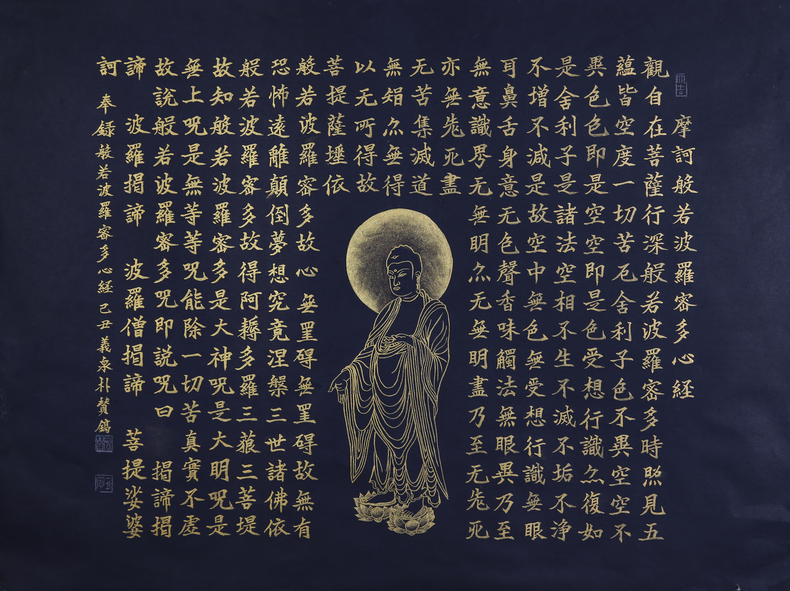 摩訶般若波羅密多心経
觀自在菩薩行深般若波羅密多時照見五
蘊皆空度一切苦厄舍利子色不異空空不
異色色即是空空即是色受想行識亦復如
是舍利子是諸法空相不生不滅不垢不浄
不增不減是故空中無色無受想行識無眼
耳鼻舌身意无色聲香味觸法無眼界乃至
無意識界无無明亦无無明盡乃至无老死
亦無老死盡
无苦集滅道
無智亦無得
以无所得故
菩提薩埵依
般若波羅密多故心無罣碍無罣碍故無有
恐怖遠離顛倒夢想究竟涅槃三世諸佛依
般若波羅密多故得阿耨多羅三藐三菩提
故知般若波羅密多是大神呪是大明呪是
無上呪是無等等呪能除一切苦真實不虚
故說般若波羅密多呪即說呪曰 揭諦揭
諦 波羅揭諦 波羅僧揭諦 菩提娑婆
訶 奉録般若波羅密多心経己丑義泉朴贊鎬